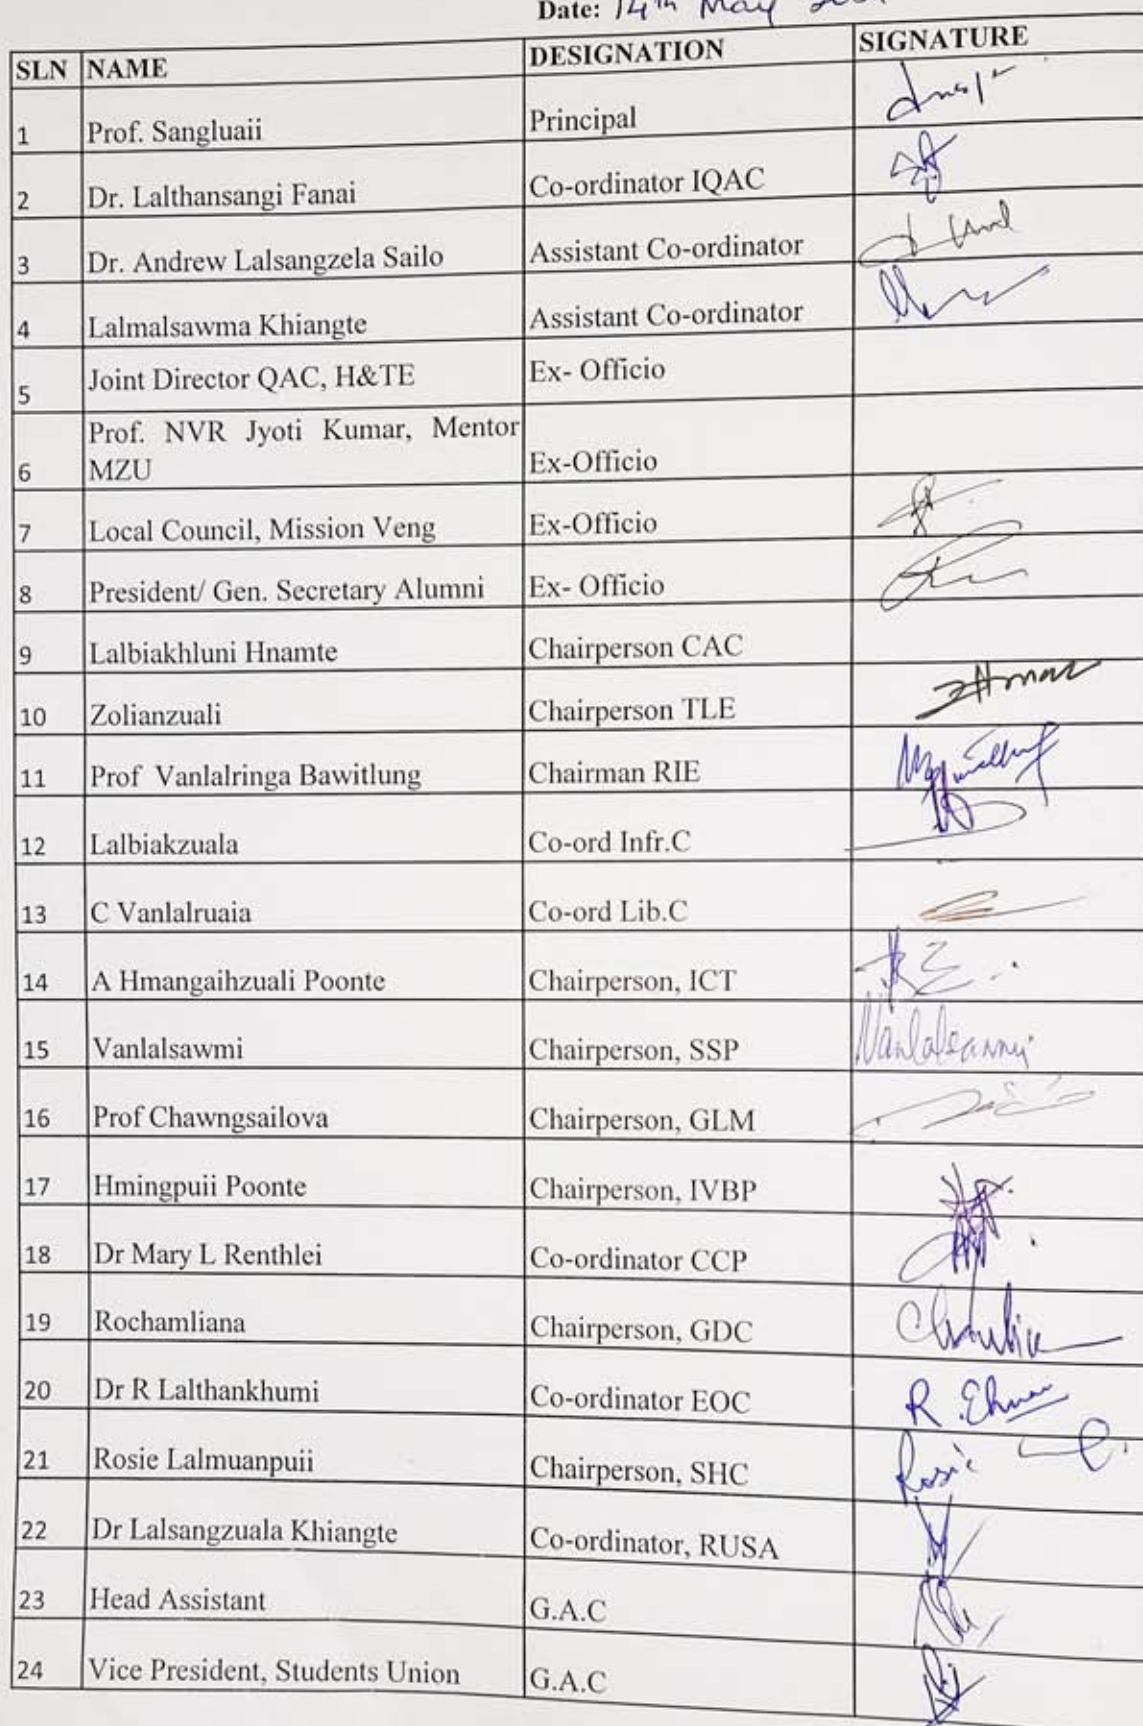 Date: 14th May
SLN NAME DESIGNATION SIGNATURE
1 Prof. Sangluaii Principal
2 Dr. Lalthansangi Fanai Co-ordinator IQAC
3 Dr. Andrew Lalsangzela Sailo Assistant Co-ordinator
4 Lalmalsawma Khiangte Assistant Co-ordinator
5 Joint Director QAC, H&TE Ex- Officio
Prof. NVR Jyoti Kumar, Mentor
6 MZU Ex-Officio
7 Local Council, Mission Veng Ex-Officio
8 President/ Gen. Secretary Alumni Ex- Officio
9 Lalbiakhluni Hnamte Chairperson CAC
10 Zolianzuali Chairperson TLE
11 Prof Vanlalringa Bawitlung Chairman RIE
12 Lalbiakzuala Co-ord Infr.C
13 C Vanlalruaia Co-ord Lib.C
14 A Hmangaihzuali Poonte Chairperson, ICT
15 Vanlalsawmi Chairperson, SSP
16 Prof Chawngsailova Chairperson, GLM
17 Hmingpuii Poonte Chairperson, IVBP
18 Dr Mary L Renthlei Co-ordinator CCP
19 Rochamliana Chairperson, GDC
20 Dr R Lalthankhumi Co-ordinator EOC R.
21 Rosie Lalmuanpuii Chairperson, SHC Rosie
22 Dr Lalsangzuala Khiangte Co-ordinator, RUSA
23 Head Assistant G.A.C
24 Vice President, Students Union G.A.C